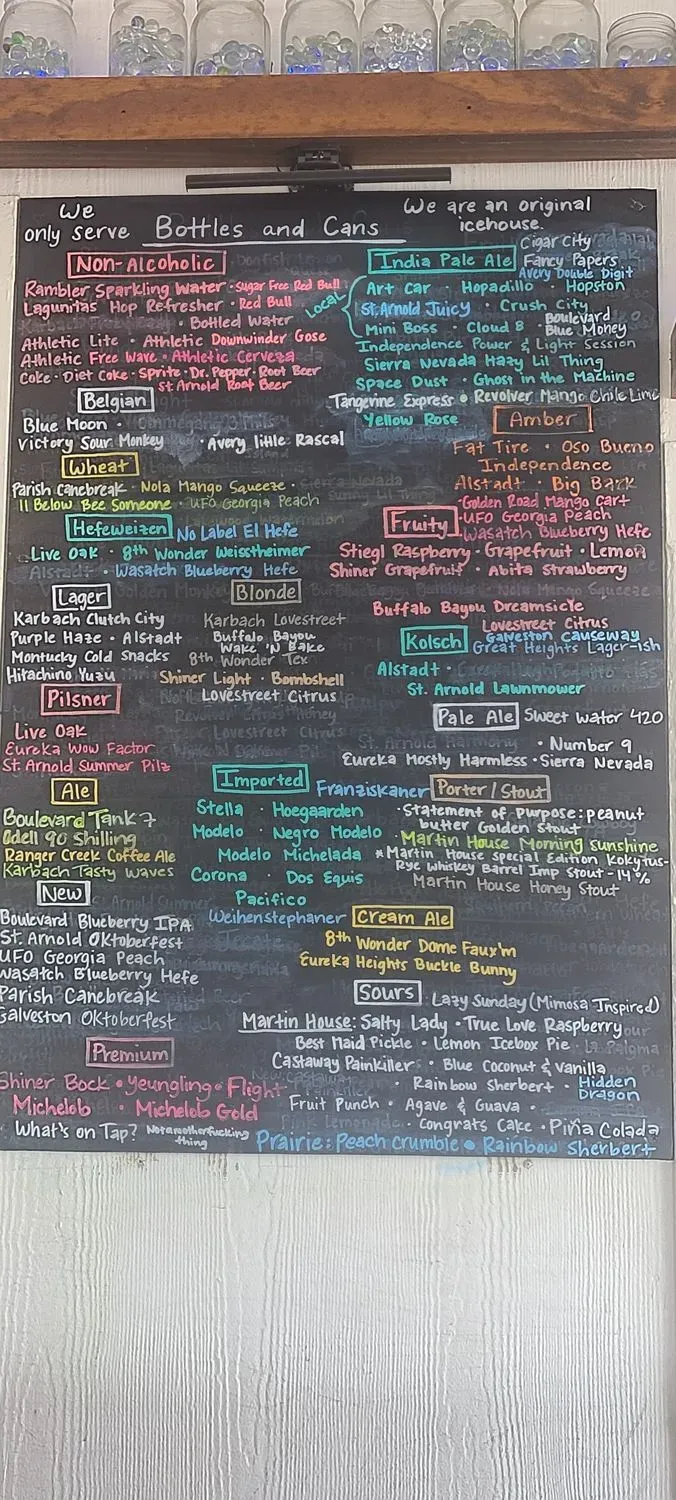 We
only serve Bottles and Cans
We are an original
icehouse.
Non-Alcoholic
Rambler Sparkling Water · Sugar Free Red Bull
Lagunitas Hop Refresher · Red Bull
· Bottled Water
Athletic Lite · Athletic Downwinder Gose
Athletic Free Wave · Athletic Cerveza
Coke · Diet Coke · Sprite · Dr. Pepper · Root Beer
St Arnold Root Beer
Belgian
Blue Moon ·
Victory Sour Monkey · Avery little Rascal
Wheat
Parish Canebreak · Nola Mango Squeeze ·
11 Below Bee Someone · UFO Georgia Peach
Hefeweizen No Label El Hefe
Live Oak · 8th Wonder Weisstheimer
Alstadt · Wasatch Blueberry Hefe
Lager
Karbach Clutch City
Purple Haze · Alstadt
Montucky Cold Snacks
Hitachino Yuzu
Blonde
Karbach Lovestreet
Buffalo Bayou
Wake 'N Bake
8th Wonder Tex
Shiner Light · Bombshell
Lovestreet Citrus
Pilsner
Live Oak
Eureka Wow Factor
St Arnold Summer Pilz
Ale
Boulevard Tank 7
Odell 90 Shilling
Ranger Creek Coffee Ale
Karbach Tasty Waves
New
Boulevard Blueberry IPA
St. Arnold Oktoberfest
UFO Georgia Peach
Wasatch Blueberry Hefe
Parish Canebreak
Galveston Oktoberfest
Premium
Shiner Bock · Yeungling · Flight
Michelob · Michelob Gold
What's on Tap? Notanotherfucking
thing
India Pale Ale
Cigar City
Fancy Papers
Avery Double Digit
Local
Art Car · Hopadillo · Hopston
St. Arnold Juicy · Crush City
Mini Boss · Cloud 8 · Boulevard
Blue Money
Independence Power & Light Session
Sierra Nevada Hazy Lil Thing
Space Dust · Ghost in the Machine
Tangerine Express · Revolver Mango Chile Lime
Yellow Rose
Amber
Fat Tire · Oso Bueno
Independence
Alstadt · Big Bark
Fruity
·Golden Road Mango Cart
·UFO Georgia Peach
·Wasatch Blueberry Hefe
Stiegl Raspberry · Grapefruit · Lemon
Shiner Grapefruit · Abita Strawberry
Buffalo Bayou Dreamsicle
Lovestreet Citrus
Kolsch
Galveston Causeway
Great Heights Lager-ish
Alstadt ·
St. Arnold Lawnmower
Pale Ale Sweet Water 420
· Number 9
Eureka Mostly Harmless · Sierra Nevada
Imported Franziskaner
Stella · Hoegaarden
Modelo · Negro Modelo
Modelo Michelada
Corona · Dos Equis
Pacifico
Weihenstephaner
Porter/Stout
·Statement of Purpose: peanut
butter Golden Stout
·Martin House Morning Sunshine
*Martin House Special Edition Kokytus-
Rye Whiskey Barrel Imp Stout - 14%
Martin House Honey Stout
Cream Ale
8th Wonder Dome Faux'm
Eureka Heights Buckle Bunny
Sours Lazy Sunday (Mimosa Inspired)
Martin House: Salty Lady · True Love Raspberry
Best Maid Pickle · Lemon Icebox Pie ·
Castaway Painkiller · Blue Coconut & Vanilla
· Rainbow Sherbert · Hidden
Dragon
Fruit Punch · Agave & Guava ·
· Congrats Cake · Piña Colada
Prairie: Peach crumble · Rainbow Sherbert